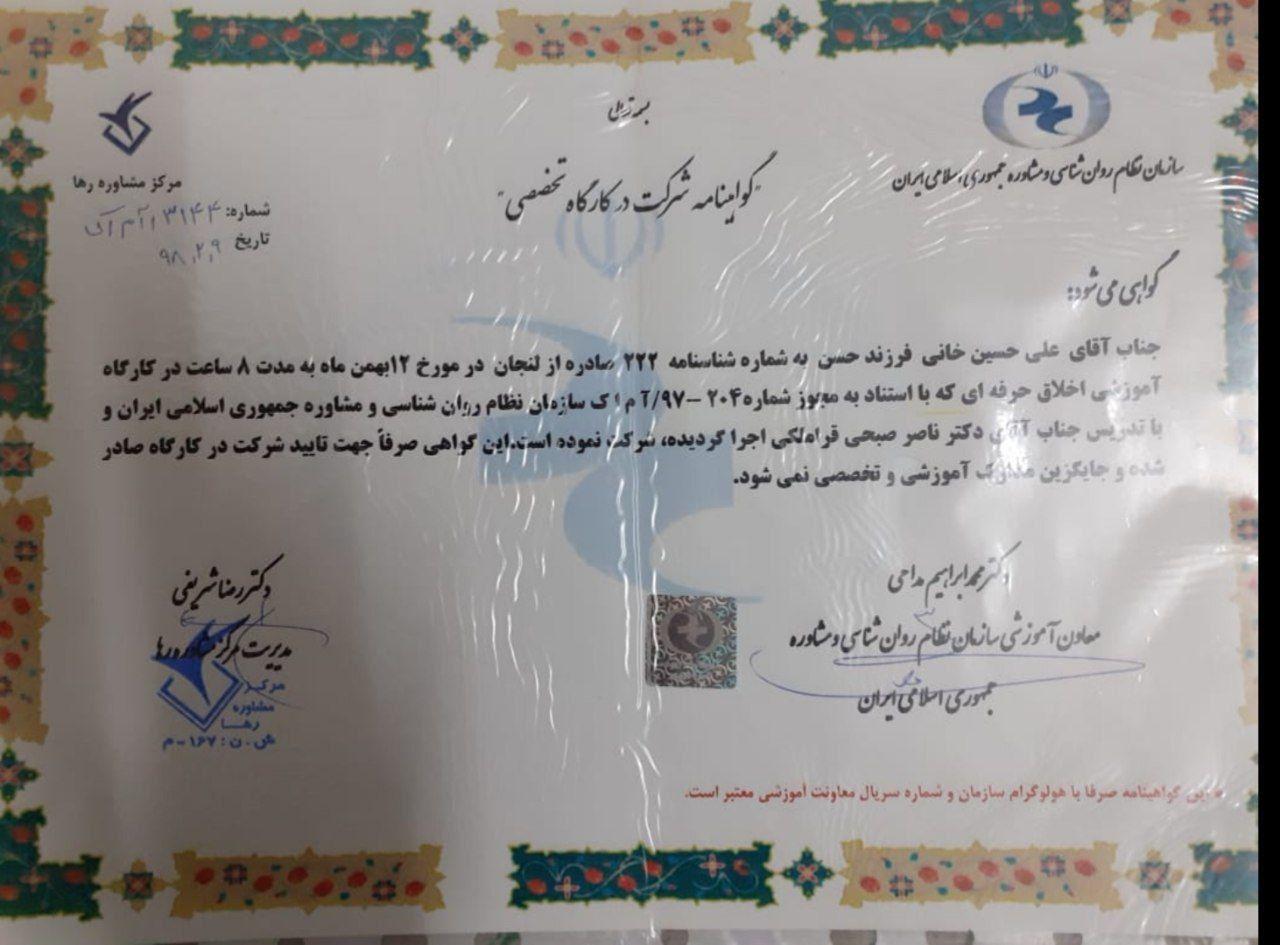 بسمه تعالی
سازمان نظام روان شناسی و مشاوره جمهوری اسلامی ایران
"گواهینامه شرکت در کارگاه تخصصی"
مرکز مشاوره رها
شماره: ۳۱۴۴
تاریخ ۹۸٫۲٫۹
گواهی می شود:
جناب آقای علی حسین خانی فرزند حسن به شماره شناسنامه ۲۲۲ صادره از لنجان در مورخ ۱۲بهمن ماه به مدت ۸ ساعت در کارگاه
آموزشی اخلاق حرفه ای که با استناد به مجوز شماره۲۰۴ -۹۷/آ م ا ک سازمان نظام روان شناسی و مشاوره جمهوری اسلامی ایران و
با تدریس جناب آقای دکتر ناصر صبحی قراملکی اجرا گردیده، شرکت نموده است.این گواهی صرفاً جهت تایید شرکت در کارگاه صادر
شده و جایگزین مدارک آموزشی و تخصصی نمی شود.
دکتر محمدابراهیم مداحی
معاون آموزشی سازمان نظام روان شناسی و مشاوره
جمهوری اسلامی ایران
دکتر رضا شریفی
مدیریت مرکز مشاوره رها
مرکز
مشاوره
رها
ش.ن: ۱۶۷-م
گواهینامه صرفا با هولوگرام سازمان و شماره سریال معاونت آموزشی معتبر است.